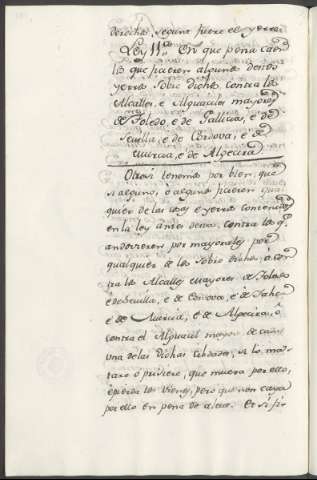 derecho, segund fuere el yerro.
Ley 11.ª En que pena caen
los que facieren alguno destos
yerros sobre dichos contra los
Alcalles, e Alguaciles mayores
de Toledo, e de Gallicia, e de
Sevilla, e de Cordova, e de
Murcia, e de Algecira
Otrosi tenemos por bien, que
si alguno, o algunos ficieren qual
quier de las cosas, e yerros contenidos
en la ley antes desta, contra los q.e
andovieren por mayorales por
qualquier de los sobre dichos, o con
tra los Alcalles mayores de Toledo
e de Sevilla, e de Cordova, e de Jahen
e de Murcia, e de Algecira, o
contra el Alguacil mayor de cada
una de las dichas Cibdades, si lo ma
tare o prisiere, que muera por ello,
e pierda los bienes, pero que non caya
por ello en pena de aleve. Et si fir